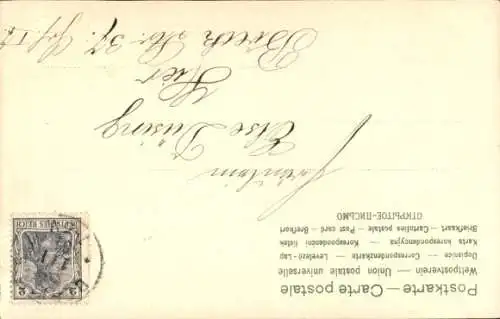 Postkarte — Carte postale
Weltpostverein — Union postale universelle
Dopisnice — Correspondenzkarte — Levelező-Lap
Karta korespondencyjna — Korespondenční lístek
Briefkaart — Cartolina postale — Post card — Brefkort
ОТКРЫТОЕ-ПИСЬМО
DEUTSCHES REICH
2 2
Fräulein
Else Düsing
Hier
Str. 37.